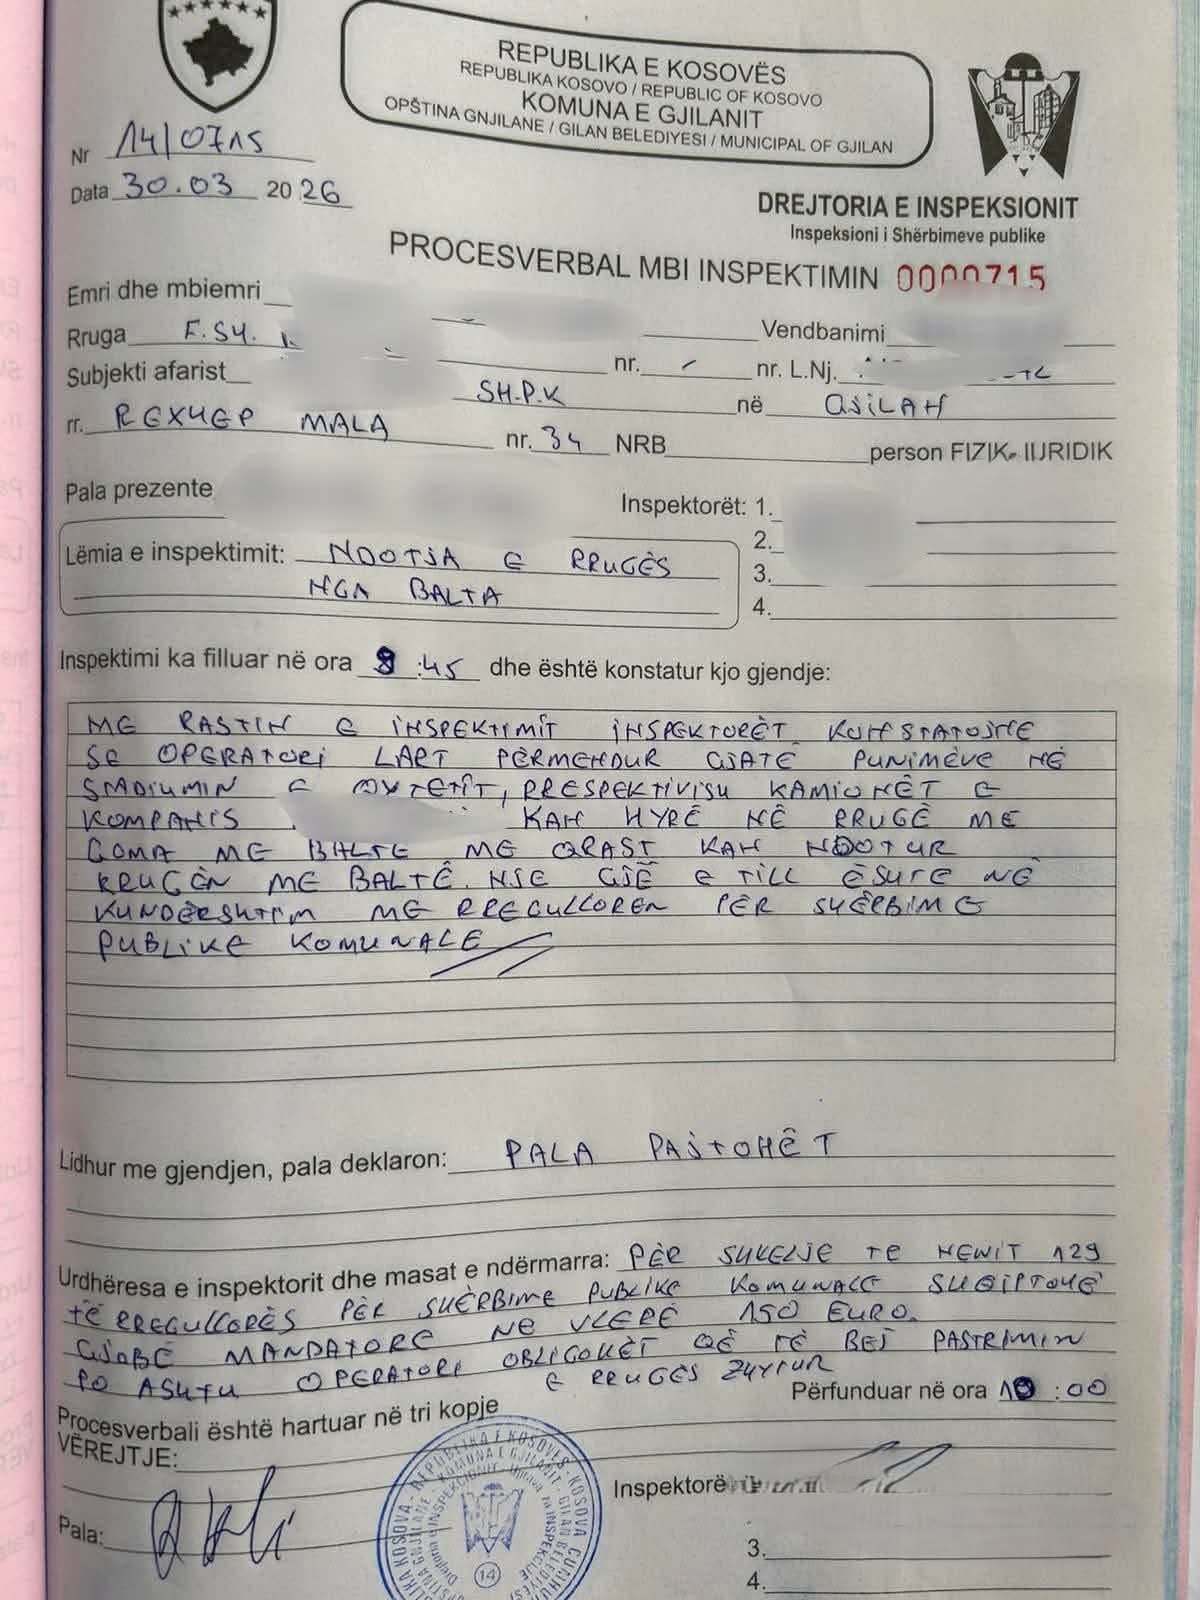 REPUBLIKA E KOSOVËS
REPUBLIKA KOSOVO / REPUBLIC OF KOSOVO
KOMUNA E GJILANIT
OPŠTINA GNJILANE / GILAN BELEDIYESI / MUNICIPAL OF GJILAN
Nr 14/0715
Data 30.03 2026
DREJTORIA E INSPEKSIONIT
Inspeksioni i Shërbimeve publike
PROCESVERBAL MBI INSPEKTIMIN 0000715
Emri dhe mbiemri
Rruga F.SH. Vendbanimi
Subjekti afarist nr. nr. L.Nj.
SH.P.K në GJILAN
rr. REXHEP MALA nr. 34 NRB person FIZIK IIJRIDIK
Pala prezente Inspektorët: 1.
2.
3.
4.
Lëmia e inspektimit: NDOTJA E RRUGËS
NGA BALTA
Inspektimi ka filluar në ora :45 dhe është konstatur kjo gjendje:
ME RASTIN E INSPEKTIMIT INSPEKTORËT KONSTATOJNE
SE OPERATORI LART PËRMENDUR GJATË PUNIMEVE NË
STADIUMIN E QYTETIT, PRESPEKTIVISH KAMIONËT E
KOMPANIS KAN HYRË NË RRUGË ME
GOMA ME BALTE ME QRAST KAN NDOTUR
RRUGËN ME BALTË. NJE GJË E TILL ËSHTE NË
KUNDËRSHTIM ME RREGULLOREN PËR SHËRBIME
PUBLIKE KOMUNALE
Lidhur me gjendjen, pala deklaron: PALA PAJTOHËT
Urdhëresa e inspektorit dhe masat e ndërmarra: PËR SHKELJE TE NENIT 129
TË RREGULLORËS PËR SHËRBIME PUBLIKE KOMUNALE SHQIPTOHË
GJOBË MANDATORE NE VLERË 150 EURO.
PO ASHTU OPERATORI OBLIGOHËT QË TË BEJ PASTRIMIN
E RRUGËS ZHYTUR
Përfunduar në ora 10:00
Procesverbali është hartuar në tri kopje
VËREJTJE:
Inspektorë
Pala:
3.
4.
REPUBLIKA E KOSOVËS
KOMUNA E GJILANIT
14